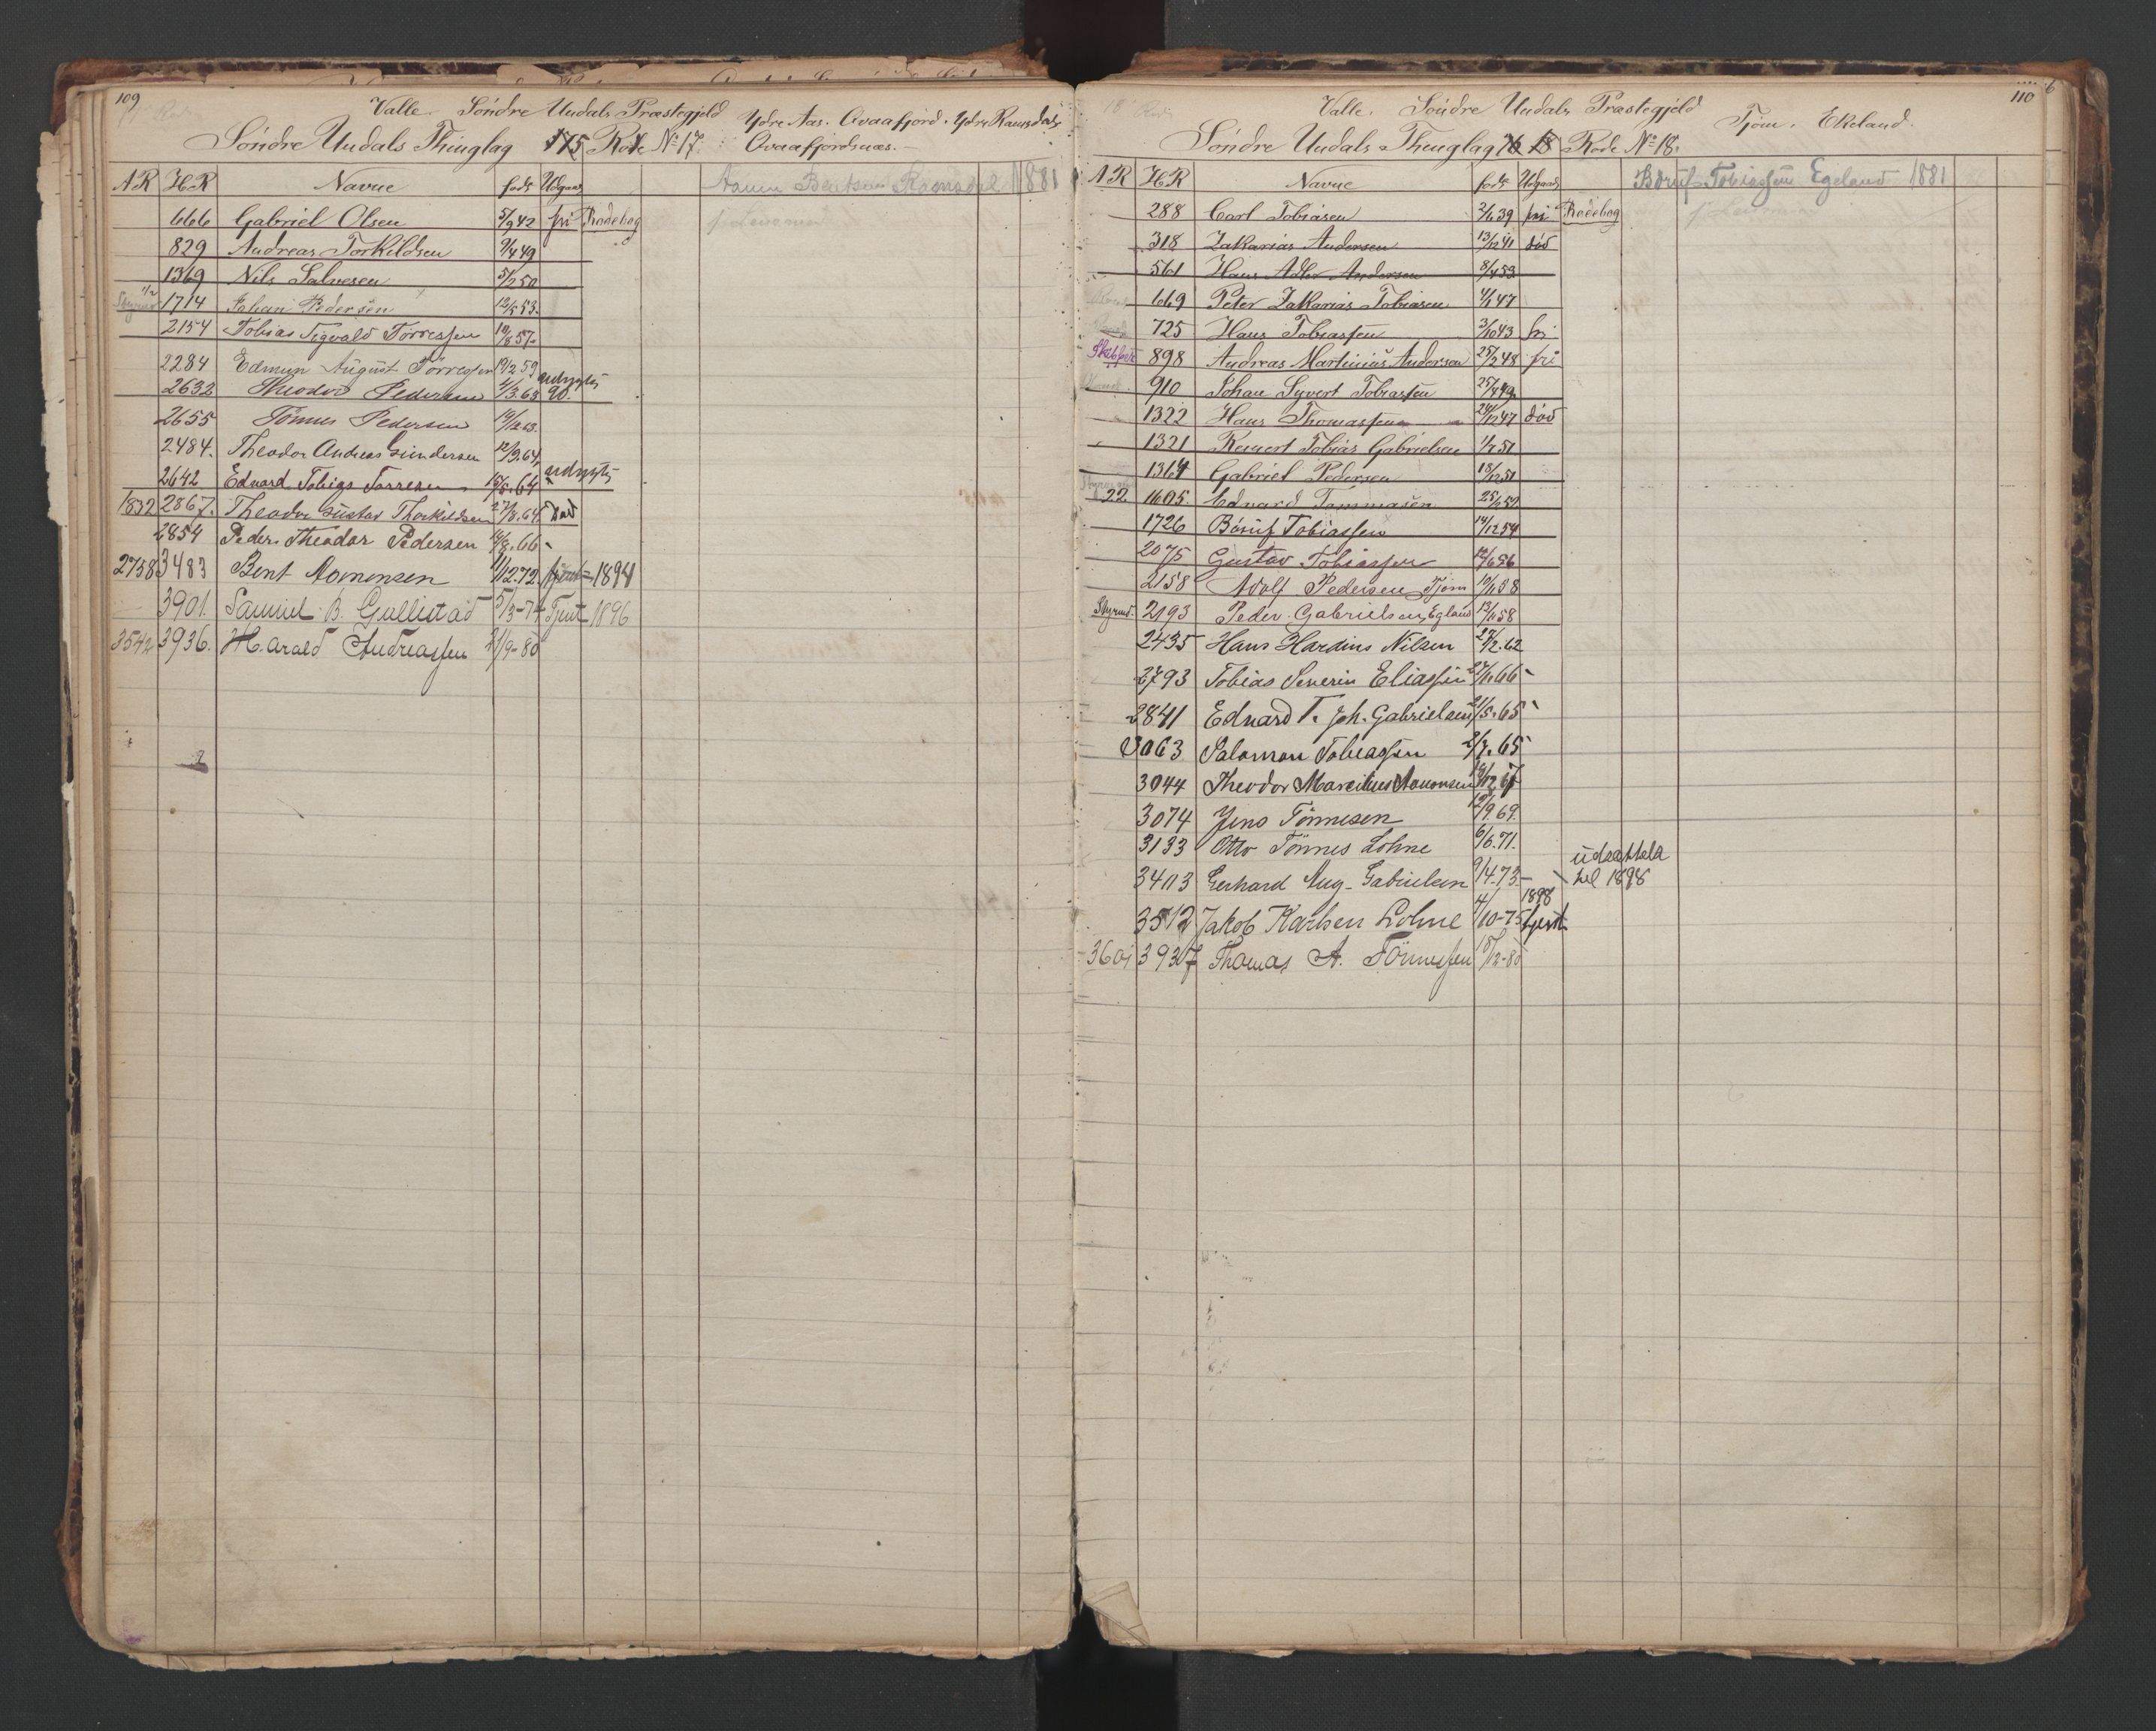 109
Valle. Söndre Undals Præstegjeld Ydre Aas. Avaafjord. Ydre Ramsdals
Söndre Undals Thinglag Rode No 17. Avaafjordsnæs.
AR HR Navne født Udgaar Bentsen Ramsdal 1881
666 Gabriel Olsen 5/9 42 fri Rodebog
829 Andreas Torkildsen 9/4 49
1369 Nils Salvesen 5/2 50
1714 Johan Pedersen 12/5 53.
2154 Tobias Sigvald Torressen 10/8 57.
2284 Edmun August Torressen 19/2 59
2632 Theodor Pedersen 4/3.63 90.
2655 Tönnes Pedersen
2484. Theodor Andreas Gundersen 12/9.64,
2642 Edvard Tobias Torresen 15/5.64
1832 2867. Theodor Gustav Thorkildsen 27/8.64. Død
2854 Peder Theodor Pedersen 14/8.66
2758 3483 Bent Aamonsen 11/12.72. tjent 1894
3901. Samuel B. Gullestad 5/3-74 Tjent 1896
3542 3936. Harald Andreassen 21/9-80
110
Valle. Söndre Undals Præstegjeld Tjöm. Ekeland.
Söndre Undals Thinglag Rode No 18.
AR HR Navne født Udgaar Böruf Tobiassen Egeland 1881
288 Carl Tobiasen 2/1 39 fri Rodebog
318 Zakarias Andersen 13/12 41 död
561 Hans Adler Andersen 8/4 53
669 Peter Zakarias Tobiasen 4/1 47
725 Hans Tobiassen 3/10 43 fri
898 Andreas Martinius Andersen 25/2 48 fri
910 Johan Syvert Tobiassen 25/4 49
1322 Hans Thomassen 24/12 47 död
1321 Reinert Tobias Gabrielsen 1/7 51
1364 Gabriel Pedersen 18/12 51
22 1605. Edvard Tommasen 25/1 52
1726 Börüf Tobiassen 14/12 54
2075 Gustav Tobiassen 12/6 56
2158 Adolf Pedersen Tjöm 10/1 58
Styrmd. 2193 Peder Gabrielsen, Egland 13/1 58
2435 Hans Hardius Nilsen 27/2.62
2793 Tobias Severin Eliassen 27/1.66
2841 Edvard T. Joh. Gabrielsen 21/5.65
3063 Salomon Tobiassen 2/7.65
3044 Theodor Marcelius Aamonsen 14/12 67
3074 Jens Tönnesen 12/9 69.
3133 Otto Tönnes Lohne 6/6.71.
3403 Gerhard Aug. Gabrielsen 9/4.73. udsættelse
til 1898
3512 Jakob Karlsen Lohne 4/10-75 1898 tjent
3601 3937 Thomas A. Tönnessen 18/12-80